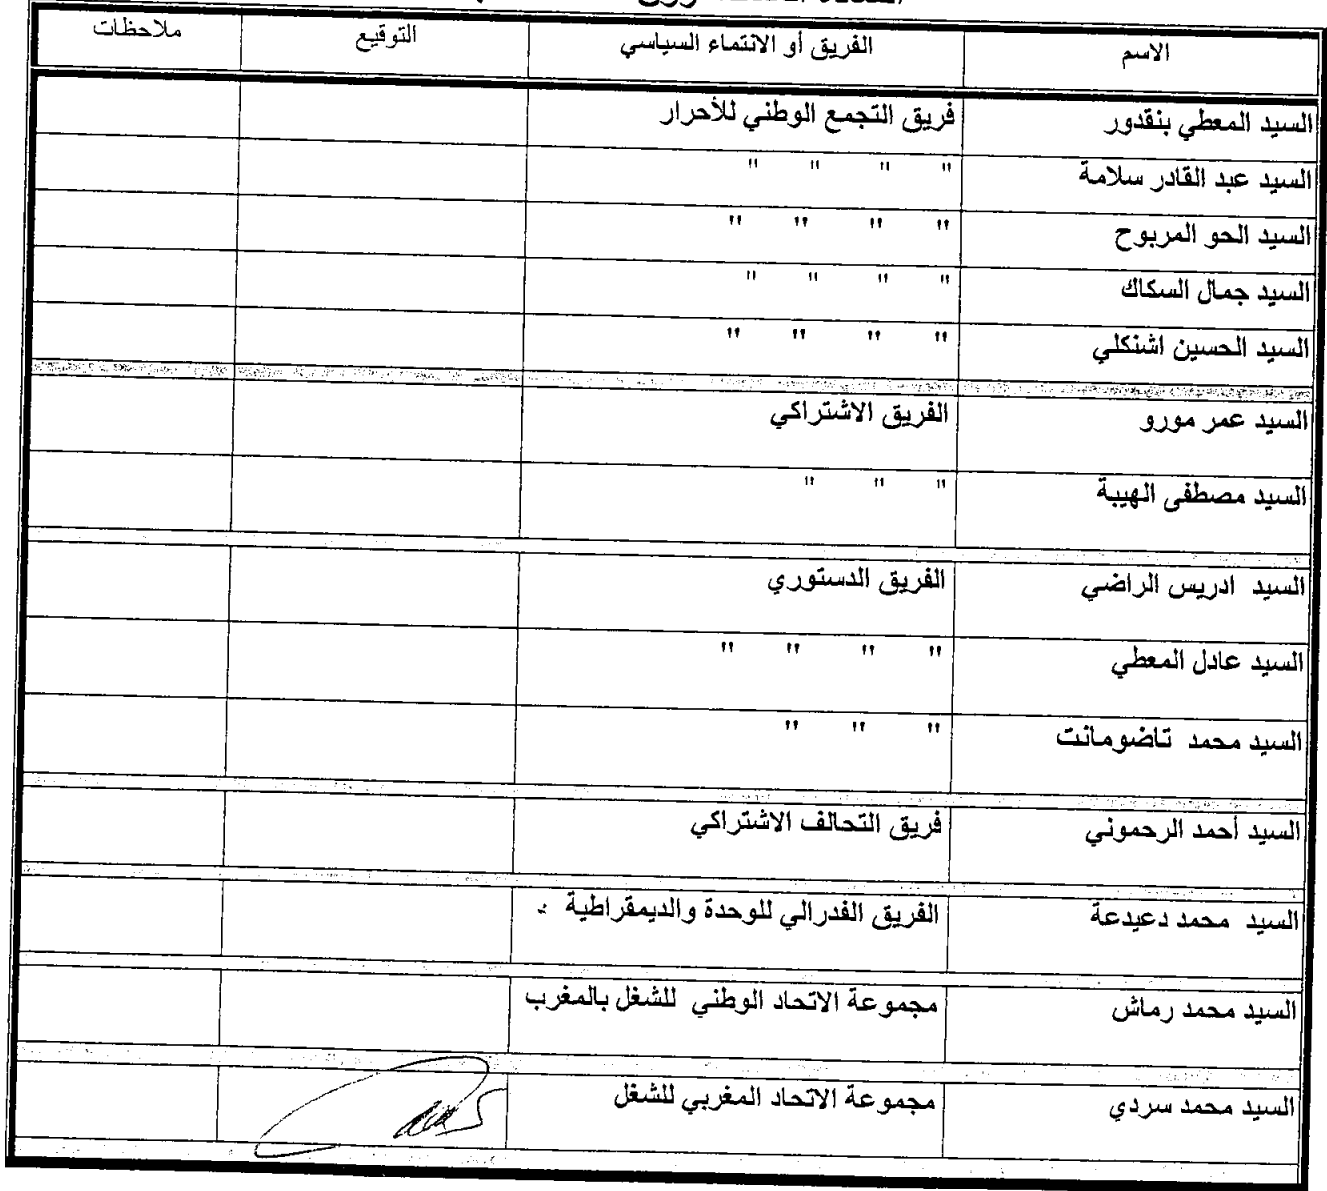 الاسم الفريق أو الانتماء السياسي التوقيع ملاحظات
السيد المعطي بنقدور فريق التجمع الوطني للأحرار
السيد عبد القادر سلامة " " " "
السيد الحو المربوح " " " "
السيد جمال السكاك " " " "
السيد الحسين اشنكلي " " " "
السيد عمر مورو الفريق الاشتراكي
السيد مصطفى الهيبة " " "
السيد ادريس الراضي الفريق الدستوري
السيد عادل المعطي " " " "
السيد محمد تاضومانت " " "
السيد أحمد الرحموني فريق التحالف الاشتراكي
السيد محمد دعيدعة الفريق الفدرالي للوحدة والديمقراطية
السيد محمد رماش مجموعة الاتحاد الوطني للشغل بالمغرب
السيد محمد سردي مجموعة الاتحاد المغربي للشغل